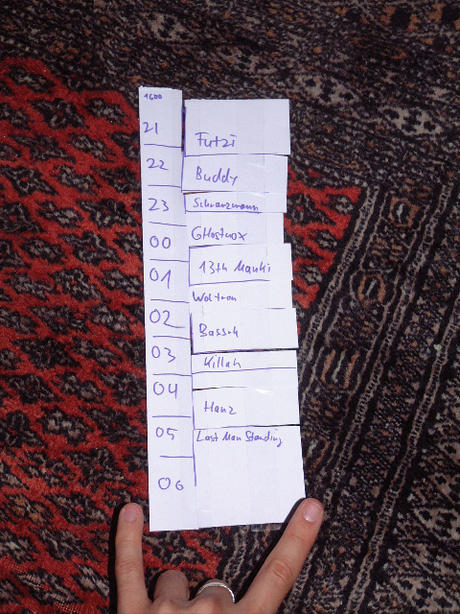 1600
21
Futzi
22
Buddy
23
Schranzmann
00
GHostnox
01
13th Manki
Woltron
02
Bassek
03
Killah
04
Hanz
05
Last Man Standing
06